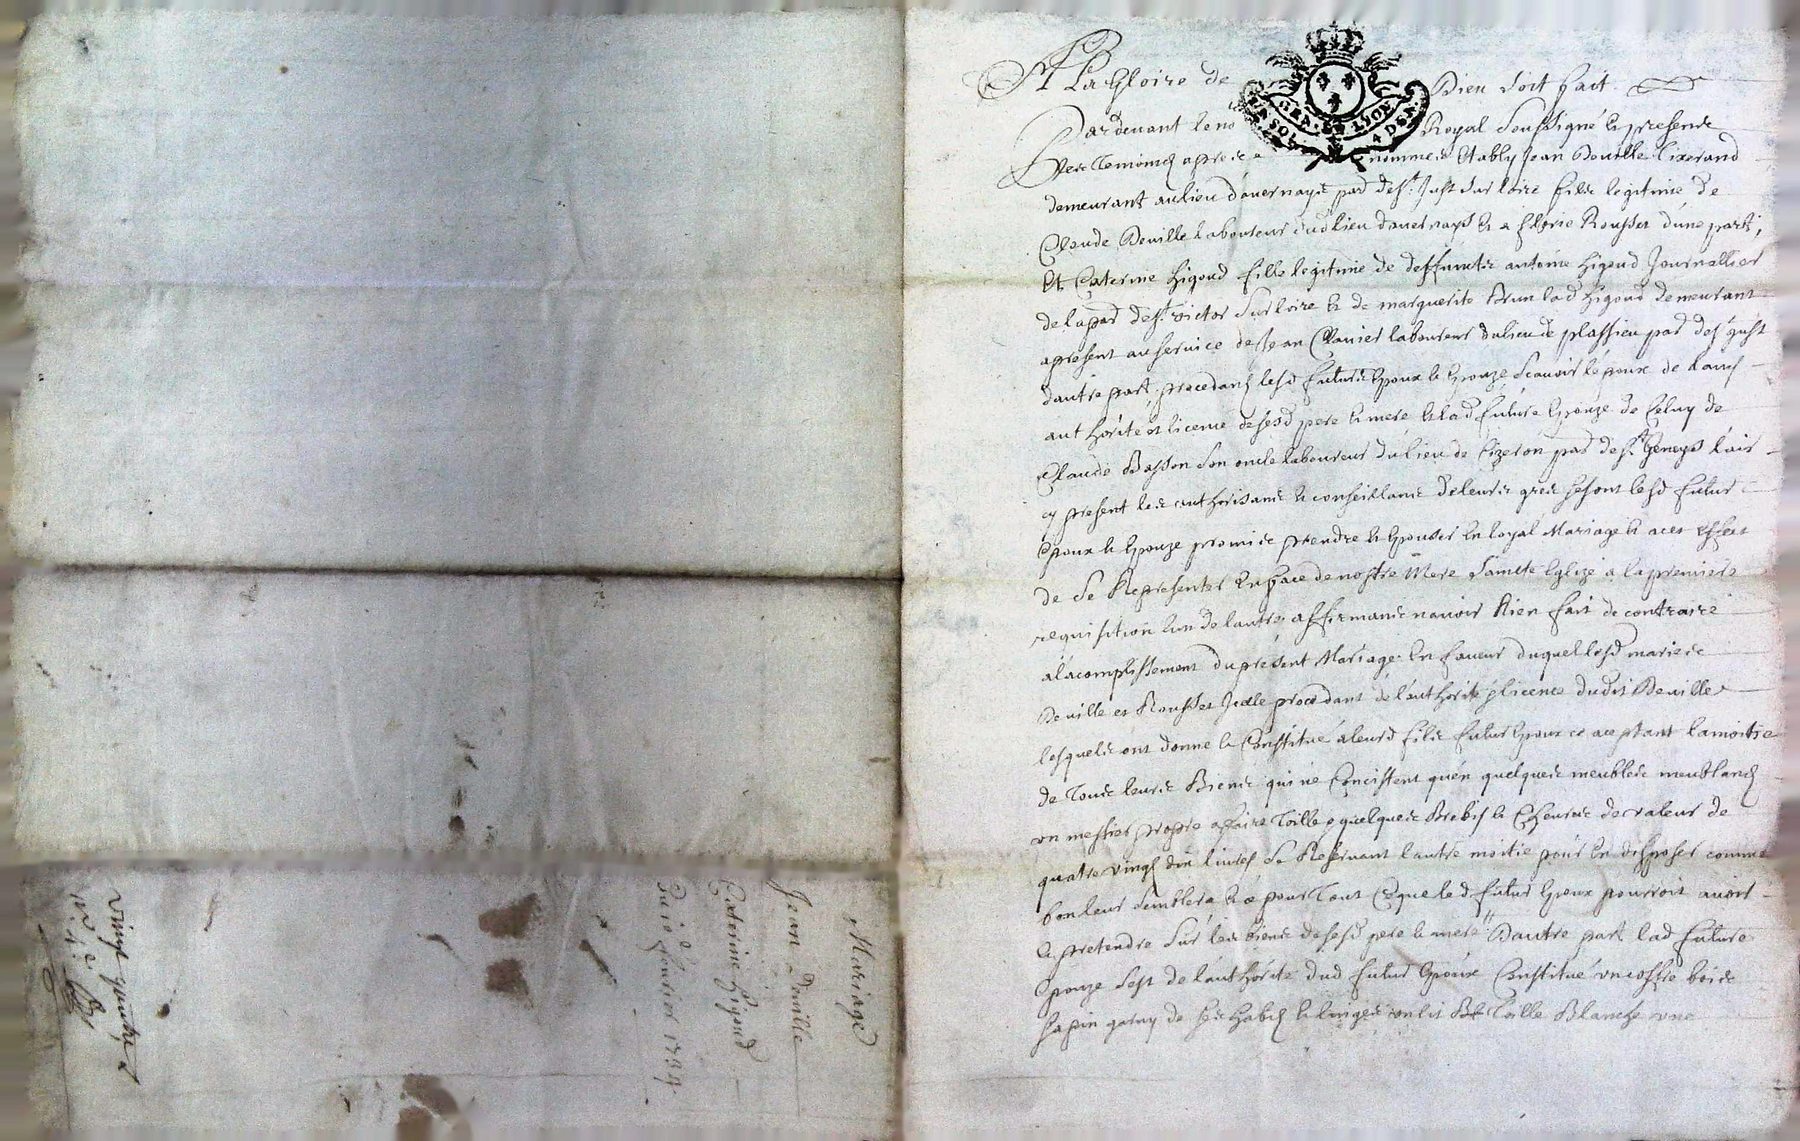 A La Gloire de Dieu soit fait
GEN. DE LYON
SOL 4 DEN
Pardevant le no Royal Soussigné & presents
les temoings apres nommes Estably Jean Deville tixerand
demeurant au lieu d'auernays par de St Just sur loire fils legitime de
Claude Deville Laboureur dud lieu dauernays & a florie Rousset d'une part,
Et Caterine Higoud fille legitime de deffuncts antoine Higoud Journallier
de la par de St victor sur loire & de marguerite Brun lad Higoud demeurant
apresent au service de Jean laboureur du lieu de plassieu par de St Just
dautre part, procedant lesd futurs Epoux & Epouze Scauoir l'epoux de lauis
authorité et licence de sesd pere & mere & lad future Epouze de Celuy de
Claude Basson son oncle laboureur du lieu de Cizeron par de St Geneys l'air
cy present les authorisants & conseillants de leurs gres se sont lesd futur
Epoux & Epouze promis prendre & Epouser En loyal Mariage & a cet Effect
de se Representer En face de nostre Mere Saincte Eglize a la premiere
requisition l'un de lautre, affirmants n'auoir Rien fait de contraire
a lacomplissement du present Mariage En faueur duquel lesd maries
Deuille et Rousset Icelle procedant de lauthorité & licence dudit Deuille
lesquels ont donne & Constitué a leurd fils futur Epoux ce aceptant la moitie
de Tous leurs Biens qui ne Concistent qu'en quelques meubles meublants
un mestier propre a faire Toille & quelques Brebis & Cheures de valeur de
quatre vingt dix liures Se Reservant l'autre moitie pour En disposer comme
bon leur Semblera & ce pour Tout Ce que led futur Epoux pourroit auoir
& pretendre Sur les biens de sesd pere & mere Dautre part lad future
Epouze s'est de l'authorité dud futur Epoux Constitué un coffre bois
sapin garny de ses habits & linges un lit Toille Blanche une
Mariage
Jean Deuille
Caterine Higoud
feurier 1734
vingt quatre